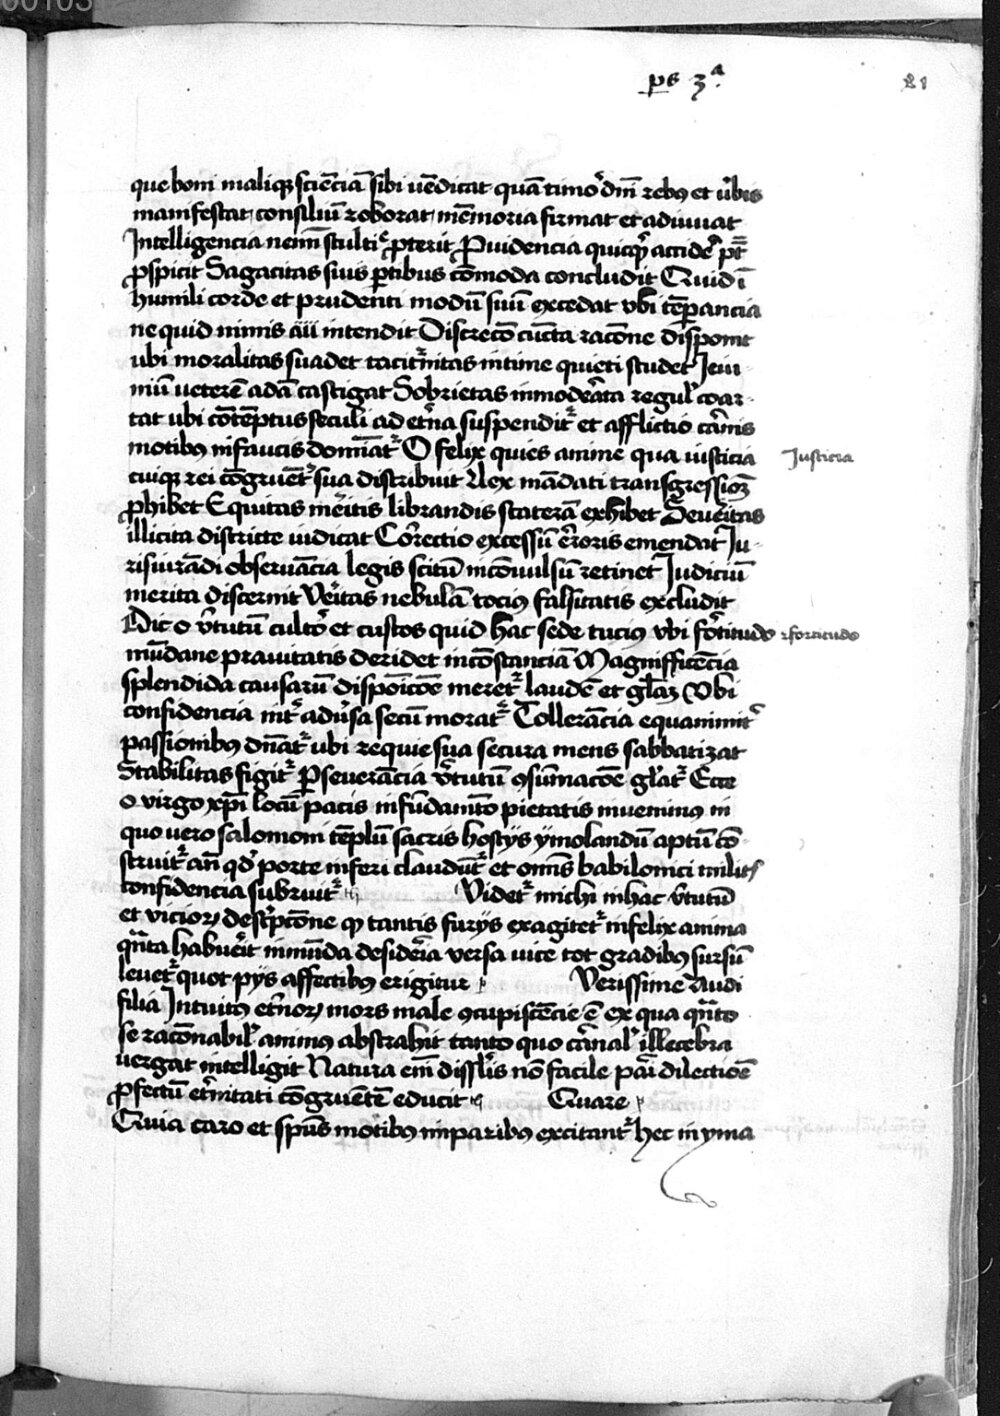 00103
ps 3ᵃ
81
que boni maliqꝫ sciēciā sibi uēdicat quā timoꝛ dn̄i rebꝰ et v̓bis
manifestat consiliū roborat memoria firmat et adiuuat
Intelligencia nemī stulti p̄terit Prouidencia quicqͥd accidē pt̄
ꝓspicit Sagacitas siuis ꝑtibus cōmoda concludit Quid ī
humili corde et prudenti modū suū excedat vbi tēꝑancia
ne quid nimis intendit Discrecō cūcta racōne disponit
ubi moralitas suadet taciturnitas intime quieti studet Ieiu-
niū ueterē adā castigat Sobrietas inmoderata regul̓ coar-
tat ubi cōtēptus seculi ad et̓na suspendit̓ et afflictio car̓nis
motibꝰ infaucis domīat̓ O felix quies anime qua iusticia
Justicia
cuiqꝫ rei cōgruēt̓ sua distribuit Lex mādati transgressiōꝫ
ꝓhibet Equitas m̓itis librandis staterā exhibet Seueritas
illicita districte iudicat Correctio excessū erroris emendat Ju-
risiurādi obseruācia legis scitū incōuulsū retinet Judiciū
merita discernit Veritas nebulā tociꝰ falsitatis excludit
Dic o v̓tutū cultoꝛ et custos quid hac sede tuciꝰ vbi fortitudo
fortitudo
mūdane prauitatis deridet incōstanciā Magnifficēcia
splendida causarū disposicōe meret̓ laudē et gl̄iaꝫ Vbi
confidencia int̓ adu̓sa secū morat̓ Tollerācia equanimit̓
passionibꝰ dn̄at̓ ubi requie sua secura mens sabbatizat
Stabilitas figit̓ Perseuerācia v̓tutū ꝯsūmacōe gl̓iat̓ Ecce
o virgo xp̄i locū pacis in fūdamēto pietatis inuenimꝰ in
quo uero salomoni tēplū sacris hostijs ymolandū aptū cō-
struit̓ an̄ qd̓ porte inferi claudūt̓ et om̄is babilonici milit̓
confidencia subruit̓ Videt̓ michi in hac v̓tutū
et vicioꝝ descripcōne ꝙ tantis furijs exagitet̓ infelix anima
qn̄ta habuerit inmūda desideria versa uice tot gradibꝰ sursū
leuet̓ quot pijs affectibus erigitur Verissime Audi
filia Intuitꝰ et̓noꝝ mors male ꝯcupiscēcie ē ex qua qn̄to
se racōnabil̓ animꝰ abstrahit tanto quo carnal̓ illecebra
uergat intelligit Natura em̄ dissil̓is nō facile pari dilectiōē
ꝓfectū et̓nitati cōgruētē educit Quare
Quia caro et sp̄us motibꝰ imparibꝰ excitant̓ hec in yma